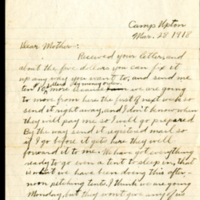 Camp Upton
Mar. 28 1918
Dear Mother:
Received your letter and
about the five dollars you can fix it
up any way you want to, and send me
ten more because we are
going to move from here the first of next week so
send it right away, and I don't know when
they will pay me so I will go prepared
By the way send it signed and so
if I go before it gets here they will
forward it to me. We have got everything
ready to go even a tent to sleep in, that
is what we have been doing this after-
noon pitching tents. I think we are going
Monday, but they won't give any of us